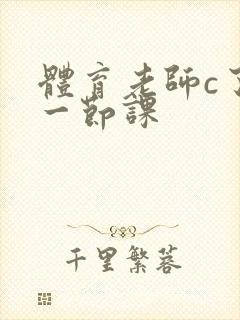 體育老師c了
一節課
千里繁蓉